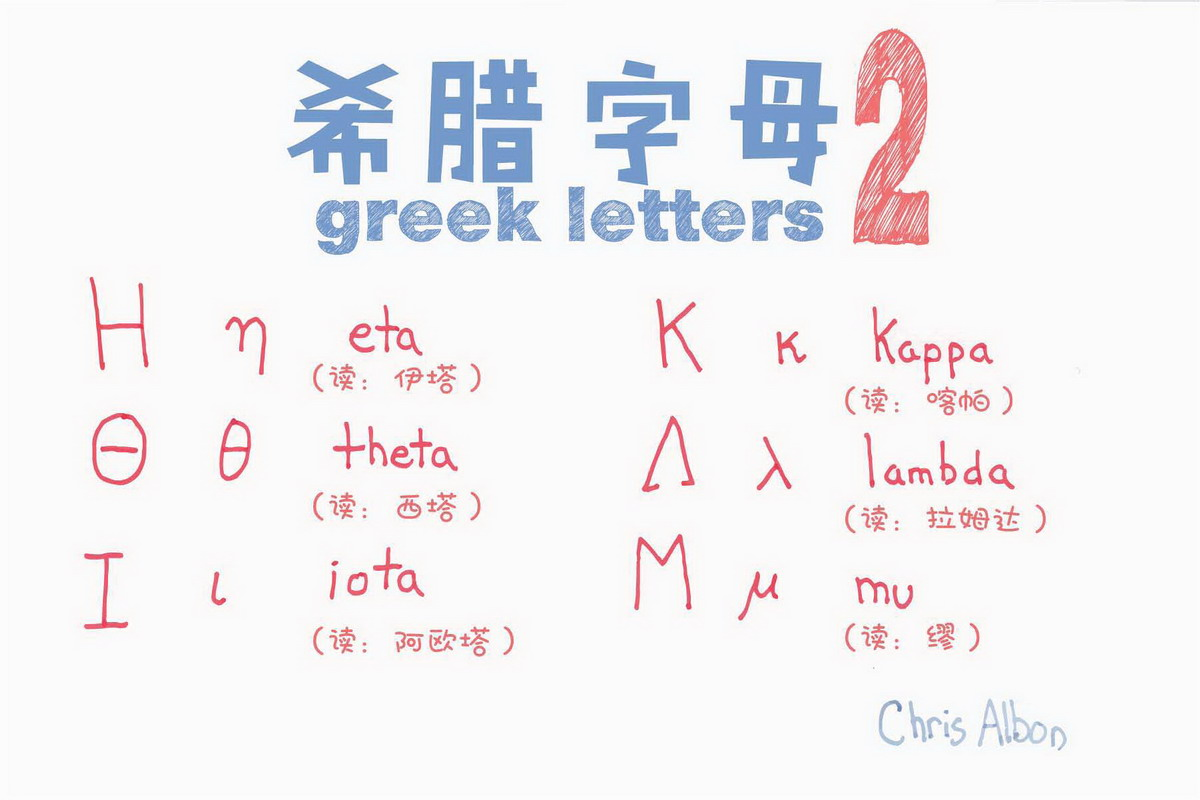 希腊字母2
greek letters
Η η eta
(读：伊塔)
Θ θ theta
(读：西塔)
Ι ι iota
(读：阿欧塔)
Κ κ Kappa
(读：喀帕)
Λ λ lambda
(读：拉姆达)
Μ μ mu
(读：缪)
Chris Albon